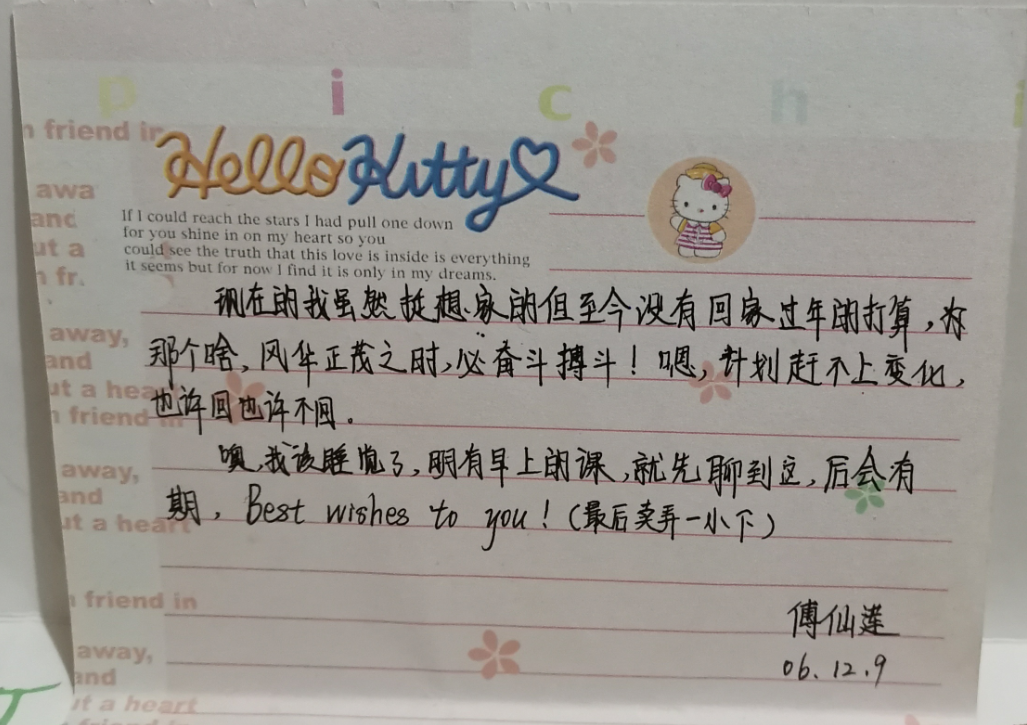 p i c h i
n friend in
Hello Kitty
awa
and
If I could reach the stars I had pull one down
for you shine in on my heart so you
ut a
could see the truth that this love is inside is everything
n fr.
it seems but for now I find it is only in my dreams.
现在的我虽然挺想家的但至今没有回家过年的打算，为
away,
那个啥，风华正茂之时，必奋斗搏斗！嗯，计划赶不上变化，
and
ut a hea
也许回也许不回。
n friend in
噢，我该睡觉了，明有早上的课，就先聊到这，后会有
away,
期，Best wishes to you！（最后卖弄一小下）
and
ut a heart
n friend in
傅仙莲
away,
06.12.9
and
ut a heart